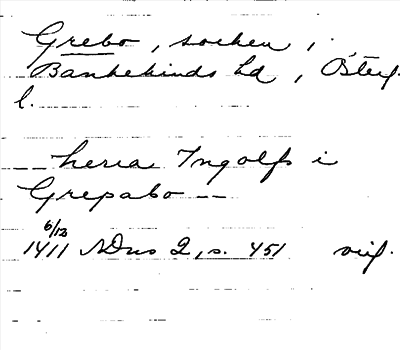 Grebo, socken,
Bankekinds hd, Österg.
l.
__ herra Ingolfs i
Grepabo __
6/12
1411 SDns 2, s. 451 orig.